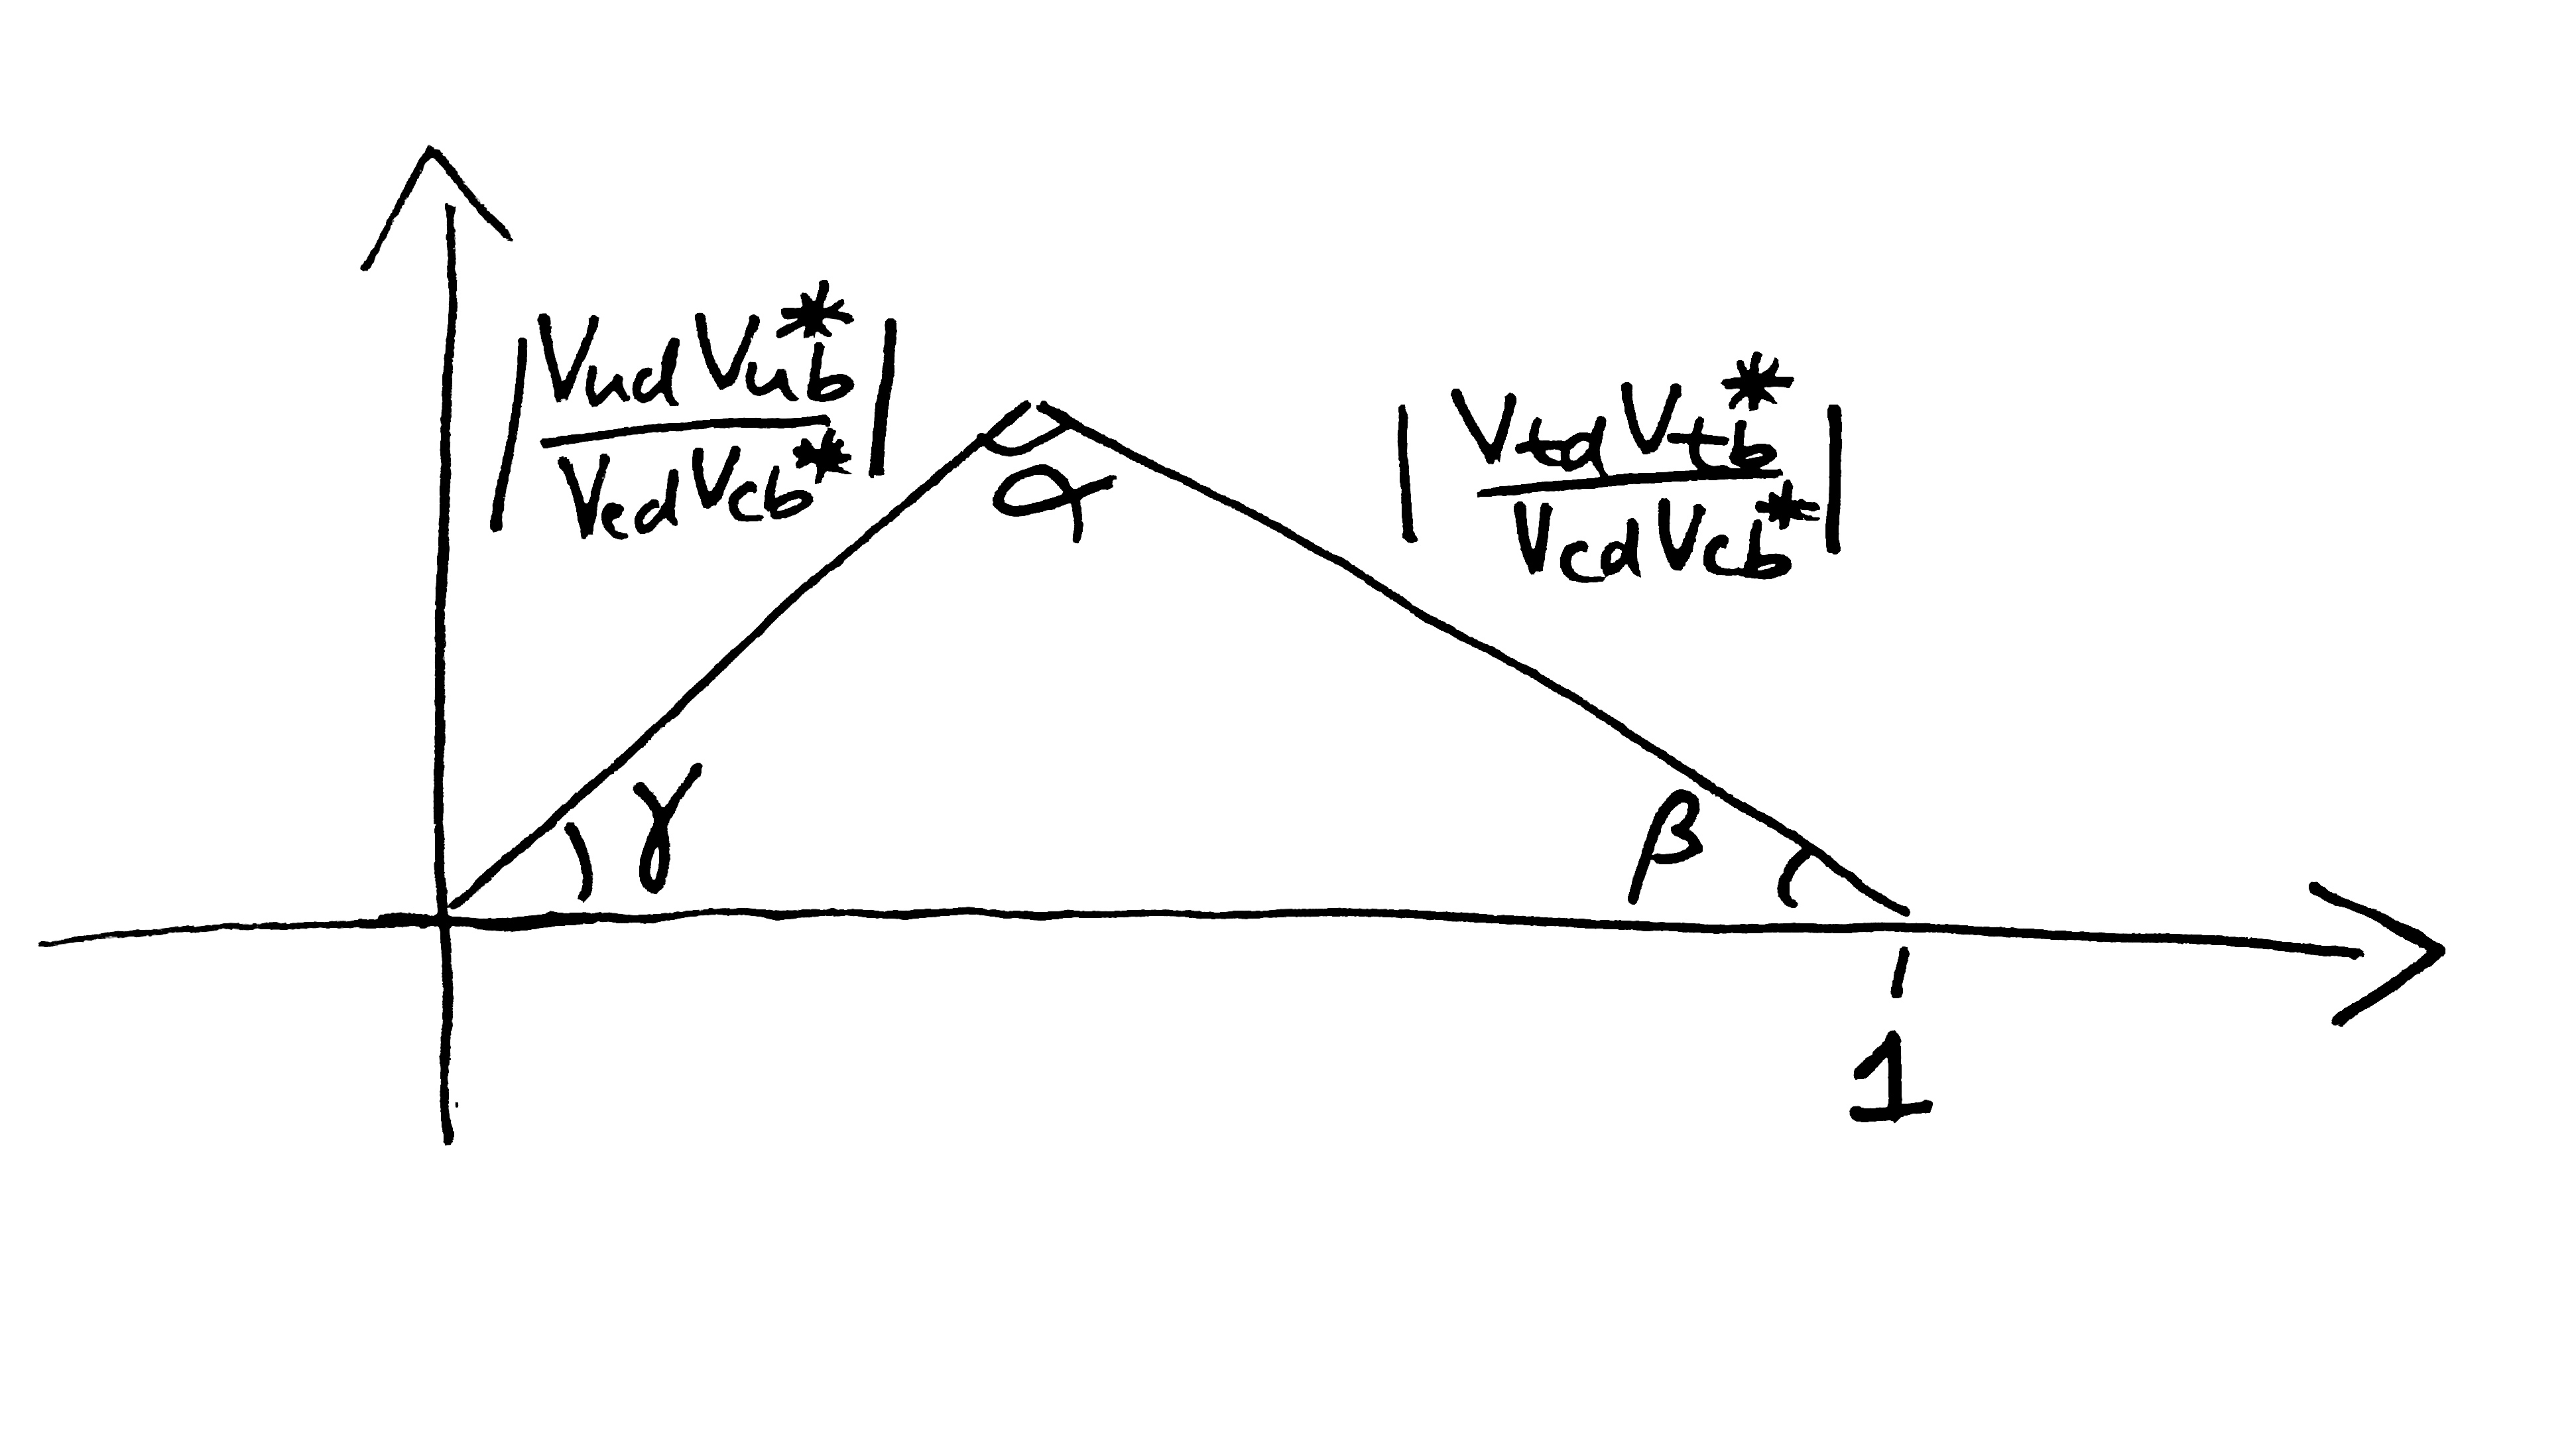 |VudVub*/VedVcb*|
|VtdVtb*/VcdVcb*|
α
γ
β
1